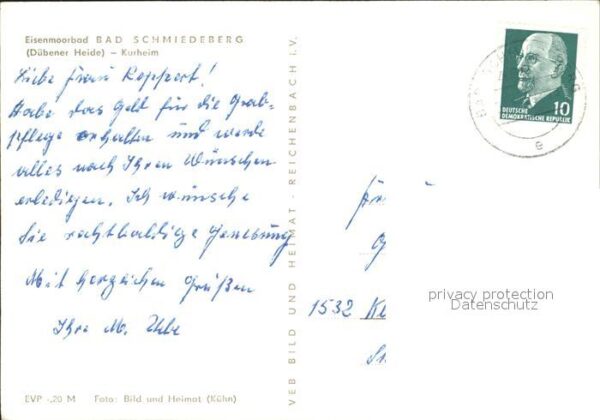 Eisenmoorbad BAD SCHMIEDEBERG
(Dübener Heide) – Kurheim
Liebe Frau Koppert!
Habe das Geld für die Grab-
pflege erhalten und werde
alles nach Ihren Wünschen
erledigen. Ich wünsche
Sie recht baldige Genesung
Mit herzlichen Grüßen
Ihre M.
EVP -.20 M Foto: Bild und Heimat (Kühn)
VEB BILD UND HEIMAT · REICHENBACH I.V.
10
DEUTSCHE
DEMOKRATISCHE REPUBLIK
e
1532
privacy protection
Datenschutz